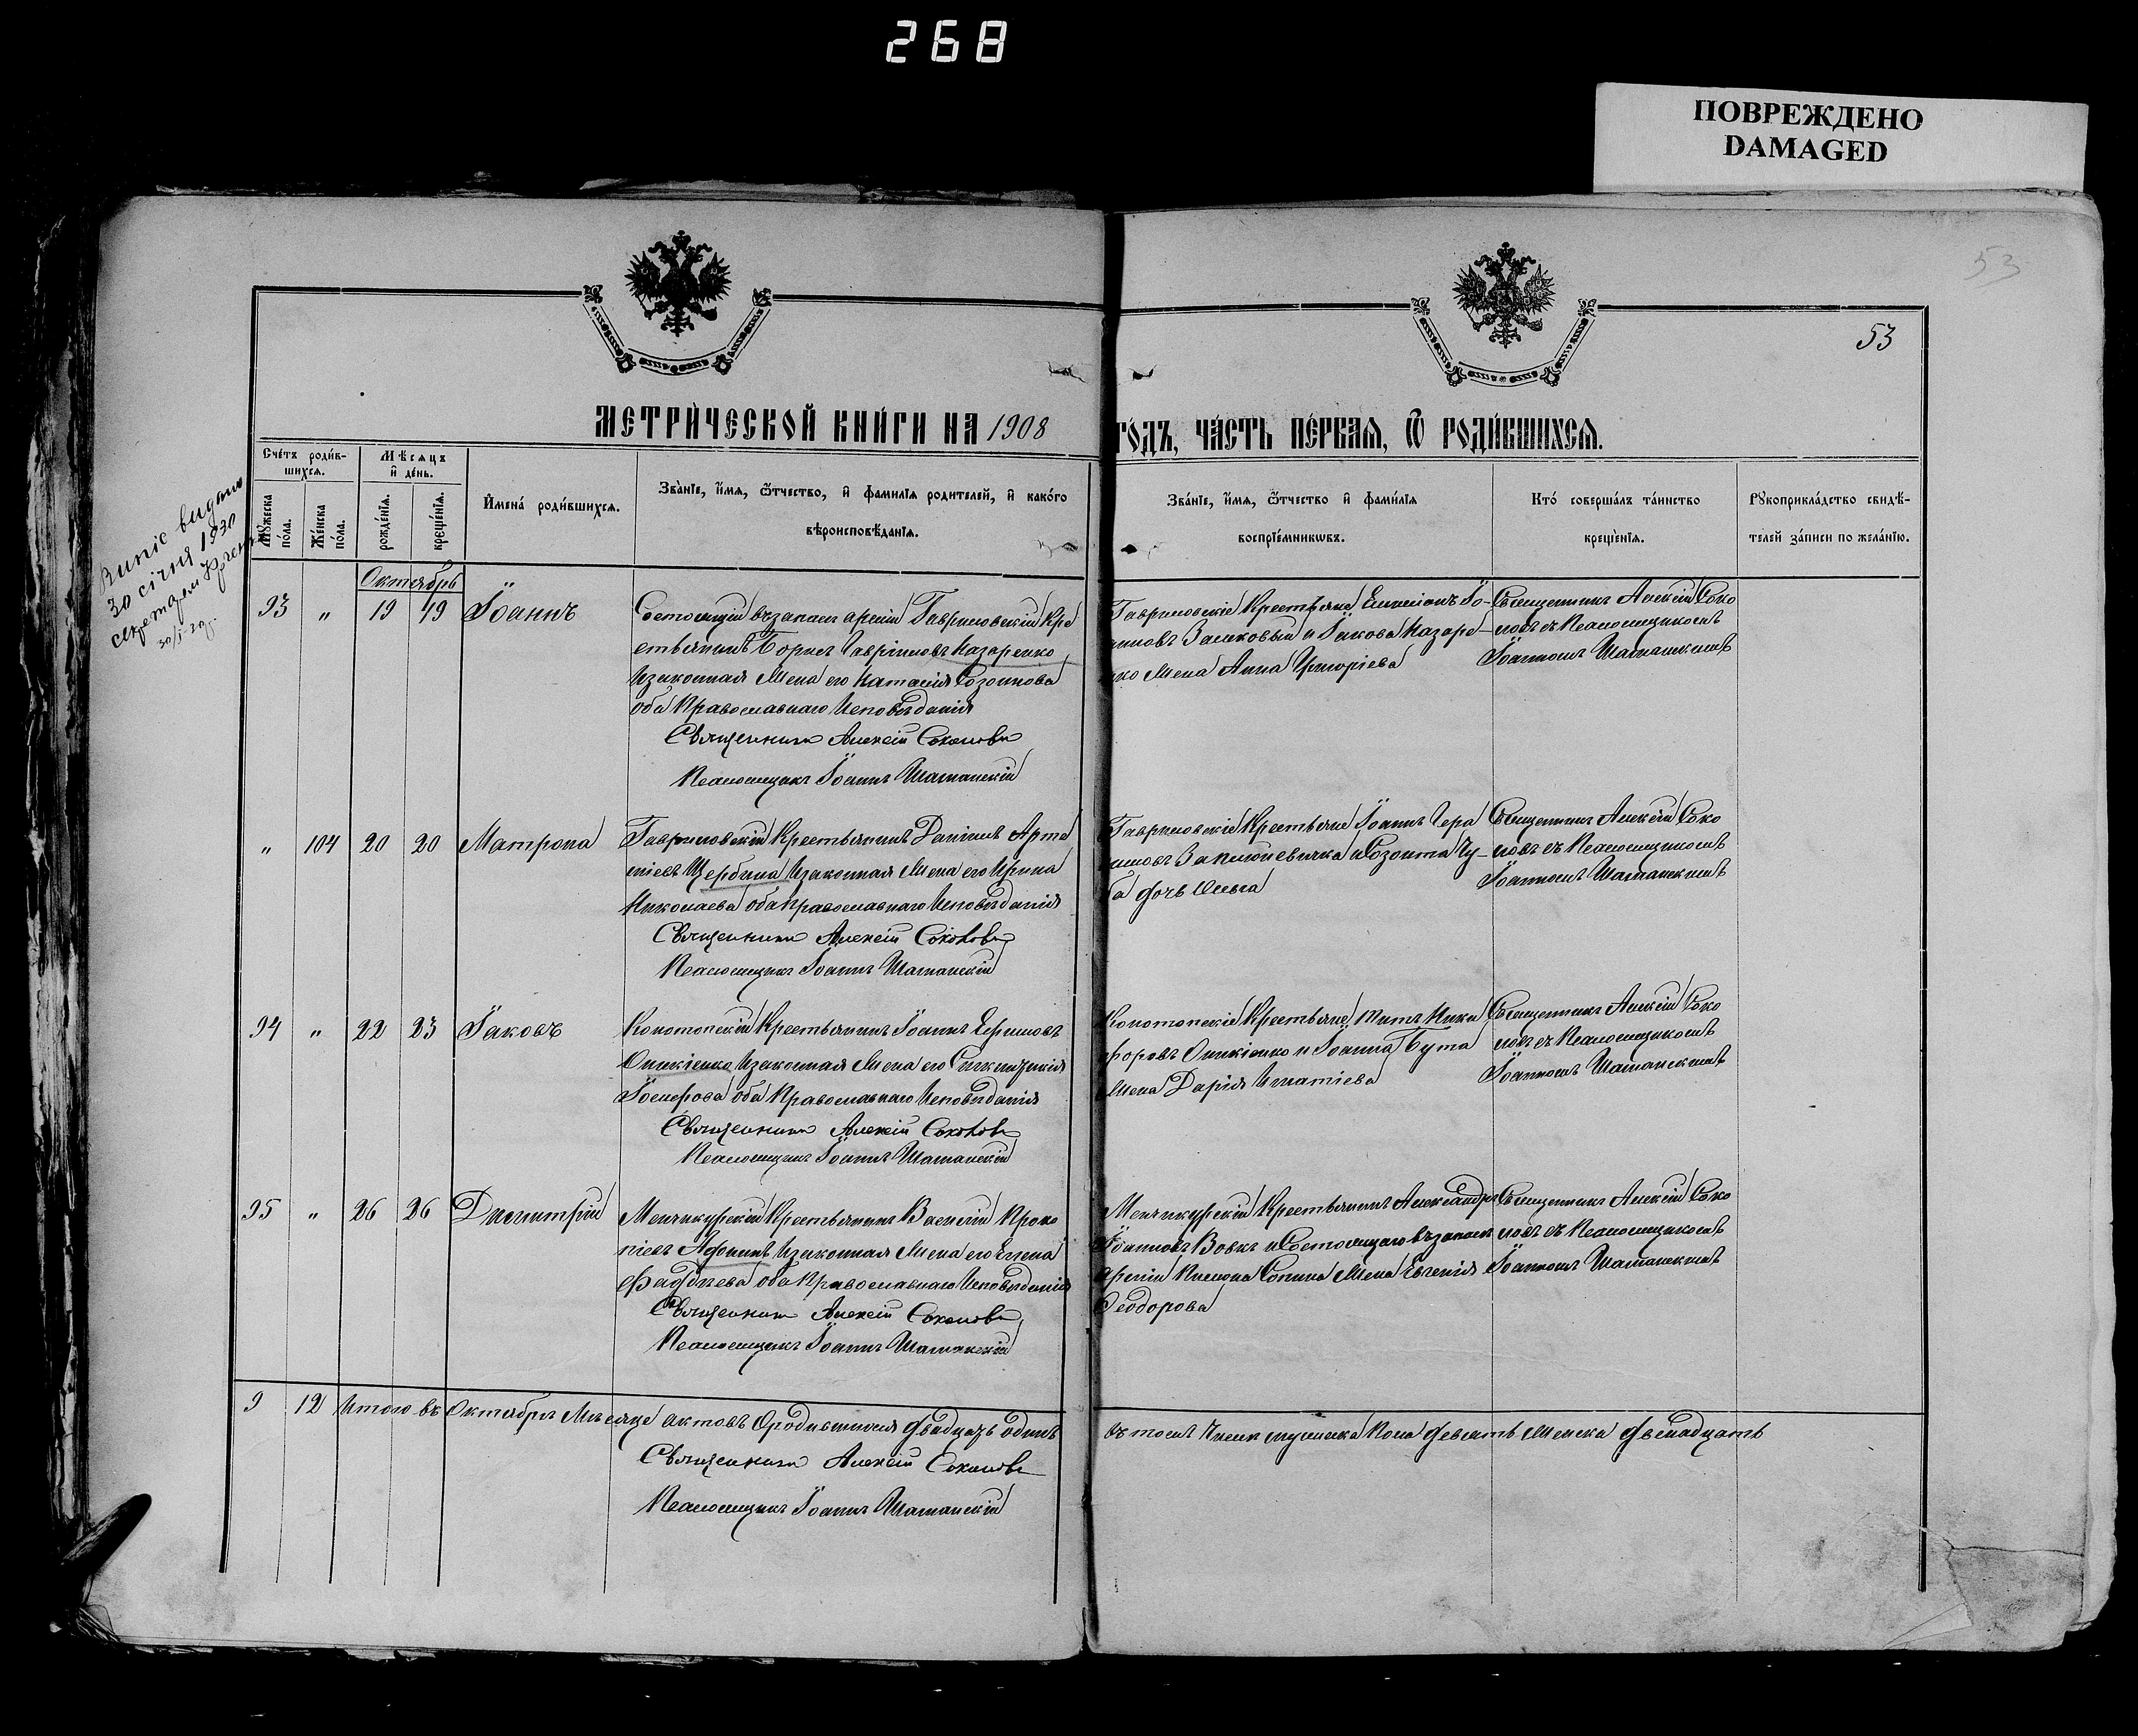 268
ПОВРЕЖДЕНО
DAMAGED
53
53
МЕТРИЧЕСКОЙ КНИГИ НА 1908 ГОДЪ, ЧАСТЬ ПЕРВАЯ, Ѡ РОДИВШИХСЯ.
Счетъ родив-
шихся.
Мѣсяцъ
и день.
Мужеска
пола.
Женска
пола.
рожденія.
крещенія.
Имена родившихся.
Званіе, имя, ѿчество, и фамилія родителей, и какого
вѣроисповѣданія.
Званіе, имя, ѿчество и фамилія
воспріемникωвъ.
Кто совершалъ таинство
крещенія.
Рукоприкладство свидѣ-
телей записи по желанію.
Випис видано
30 січня 1930
секретарем
30/I-30 р.
Октябрь
93 " 19 19 Іоаннъ
Состоящій въ запасѣ арміи Гавриловскій Кре
стьянинъ Борисъ Гавріиловъ Назаренко
и законная жена его Наталія Созонтова
оба Православнаго Исповѣданія
Священникъ Алексій Соколовъ
Псаломщикъ Іоаннъ Шаманскій
Гавриловскіе Крестьяне Іо-
анновъ и Іакова Назаре-
нко жена Анна Григоріева
Священникъ Алексій Соко
ловъ съ Псаломщикомъ
Іоанномъ Шаманскимъ
" 104 20 20 Матрона
Гавриловскій Крестьянинъ Даніилъ Арте
міевъ Щербина и законная жена его Ирина
Николаева оба Православнаго Исповѣданія
Священникъ Алексій Соколовъ
Псаломщикъ Іоаннъ Шаманскій
Гавриловскіе Крестьяне Іоаннъ Гера
симовъ и Созонта Чу-
ба дочь Ольга
Священникъ Алексій Соко
ловъ съ Псаломщикомъ
Іоанномъ Шаманскимъ
94 " 22 23 Іаковъ
Конотопскій Крестьянинъ Іоаннъ Ефимовъ
Оникіенко и законная жена его Синклитикія
Іосифова оба Православнаго Исповѣданія
Священникъ Алексій Соколовъ
Псаломщикъ Іоаннъ Шаманскій
Конотопскіе Крестьяне Титъ Ники
форовъ Оникіенко и Іоанна Бута
жена Дарія Игнатіева
Священникъ Алексій Соко
ловъ съ Псаломщикомъ
Іоанномъ Шаманскимъ
95 " 26 26 Димитрій
Менчикурскій Крестьянинъ Василій Проко
піевъ Афонинъ и законная жена его Елена
Фаддѣева оба Православнаго Исповѣданія
Священникъ Алексій Соколовъ
Псаломщикъ Іоаннъ Шаманскій
Менчикурскій Крестьянинъ Александръ
Іоанновъ Вовкъ и Состоящаго въ запасѣ
арміи Сопина жена Евгенія
Ѳеодорова
Священникъ Алексій Соко
ловъ съ Псаломщикомъ
Іоанномъ Шаманскимъ
9 12 Итого въ Октябрѣ Мѣсяцѣ актовъ О родившихся двадцать одинъ
въ томъ числѣ мужеска Пола девять женска двенадцать
Священникъ Алексій Соколовъ
Псаломщикъ Іоаннъ Шаманскій